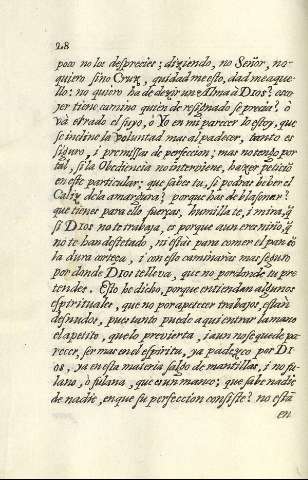 28
poco no los desprecies; diziendo, no Señor, no
quiero sino Cruz, quidad me esto, dad me aque
llo: no quiero ha de dezir un Alma à DIOS? esco
jer tiene camino quien de resignado se precia? ò
và errado el suyo, ò Yo en mi parecer lo estoy, que
se incline la voluntad mas al padecer, tanto es
siguro, i premissas de perfeccion; mas no tengo por
tal, si la Obediencia no interviene, hazer peticiõ
en este particular; que sabes tu, si podras beber el
Caliz de la amargura? porque has de blasonar?
que tienes para ello fuerças, humillate, i mira, q̃
si DIOS no te trabaja, es porque aun eres niño, y
no te han destetado, ni estàs para comer el pan cõ
la dura corteça, i con esso caminaràs mas seguro
por donde DIOS te lleva, que no por donde tu pre
tendes. Esto he dicho, porque entiendan algunos
espirituales, que no por apetecer trabajos, estàn
desnudos, pues tanto puede aqui entrar la mano
el apetito, que lo previerta, i aun no se quede pa
recer, ser mas en el espiritu, ya padezco por DI
OS, ya en esta materia saldo de mantillas, i no fu
lano, ò fulana, que es un manco; que sabe nadie
de nadie, en que su perfeccion consiste? no estã
en